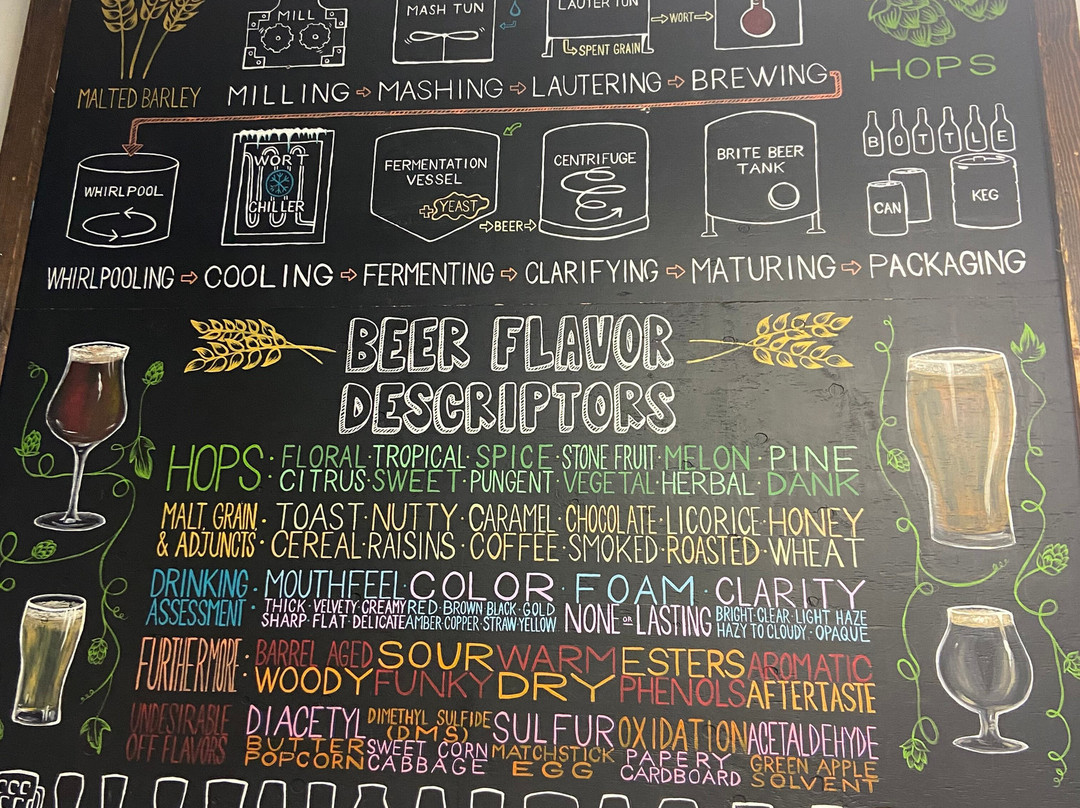 MILL
MASH TUN
LAUTER TUN
→WORT→
SPENT GRAIN
MALTED BARLEY
MILLING → MASHING → LAUTERING → BREWING
HOPS
WHIRLPOOL
WORT
CHILLER
FERMENTATION
VESSEL
+YEAST
→BEER→
CENTRIFUGE
BRITE BEER
TANK
BOTTLE
CAN
KEG
WHIRLPOOLING → COOLING → FERMENTING → CLARIFYING → MATURING → PACKAGING
BEER FLAVOR
DESCRIPTORS
HOPS · FLORAL · TROPICAL · SPICE · STONE FRUIT · MELON · PINE
· CITRUS · SWEET · PUNGENT · VEGETAL · HERBAL · DANK
MALT, GRAIN · TOAST · NUTTY · CARAMEL · CHOCOLATE · LICORICE · HONEY
& ADJUNCTS · CEREAL · RAISINS · COFFEE · SMOKED · ROASTED · WHEAT
DRINKING · MOUTHFEEL · COLOR · FOAM · CLARITY
ASSESSMENT · THICK · VELVETY · CREAMY RED · BROWN · BLACK · GOLD NONE OR LASTING BRIGHT · CLEAR · LIGHT HAZE
SHARP · FLAT · DELICATE AMBER · COPPER · STRAW · YELLOW HAZY TO CLOUDY · OPAQUE
FURTHERMORE · BARREL AGED SOUR WARM ESTERS AROMATIC
· WOODY FUNKY DRY PHENOLS AFTERTASTE
UNDESIRABLE DIACETYL DIMETHYL SULFIDE SULFUR OXIDATION ACETALDEHYDE
OFF FLAVORS (DMS)
BUTTER SWEET CORN MATCHSTICK PAPERY GREEN APPLE
POPCORN CABBAGE EGG CARDBOARD SOLVENT